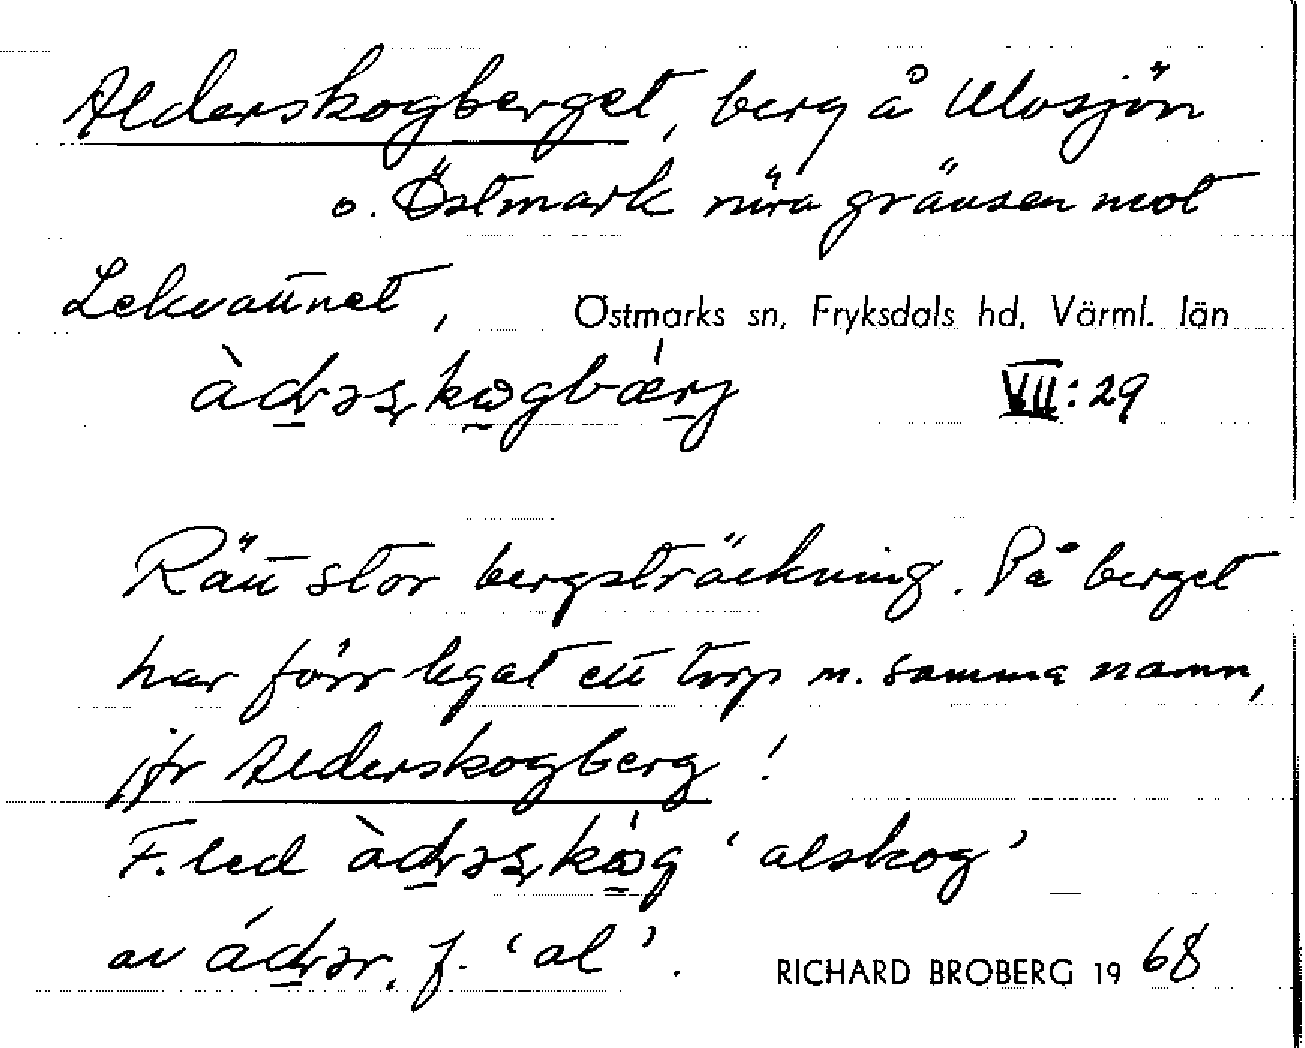 Alderskogberget, berg å Ulvsjön
o. Östmark nära gränsen mot
Lekvattnet, Östmarks sn, Fryksdals hd, Värml. län
VII:29
Rätt stor bergsträckning. På berget
har förr legat ett torp m. samma namn,
jfr Alderskogberg!
F.led 'alskog'
av f. 'al'.
RICHARD BROBERG 1968